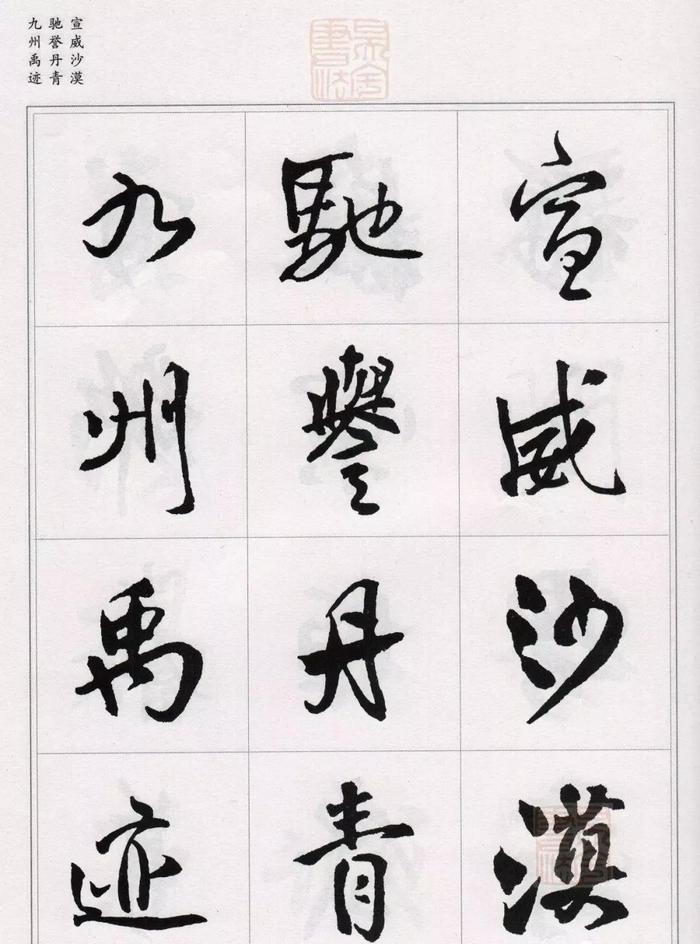 宣威沙漠
驰誉丹青
九州禹迹
宣威沙漠
馳譽丹青
九州禹迹